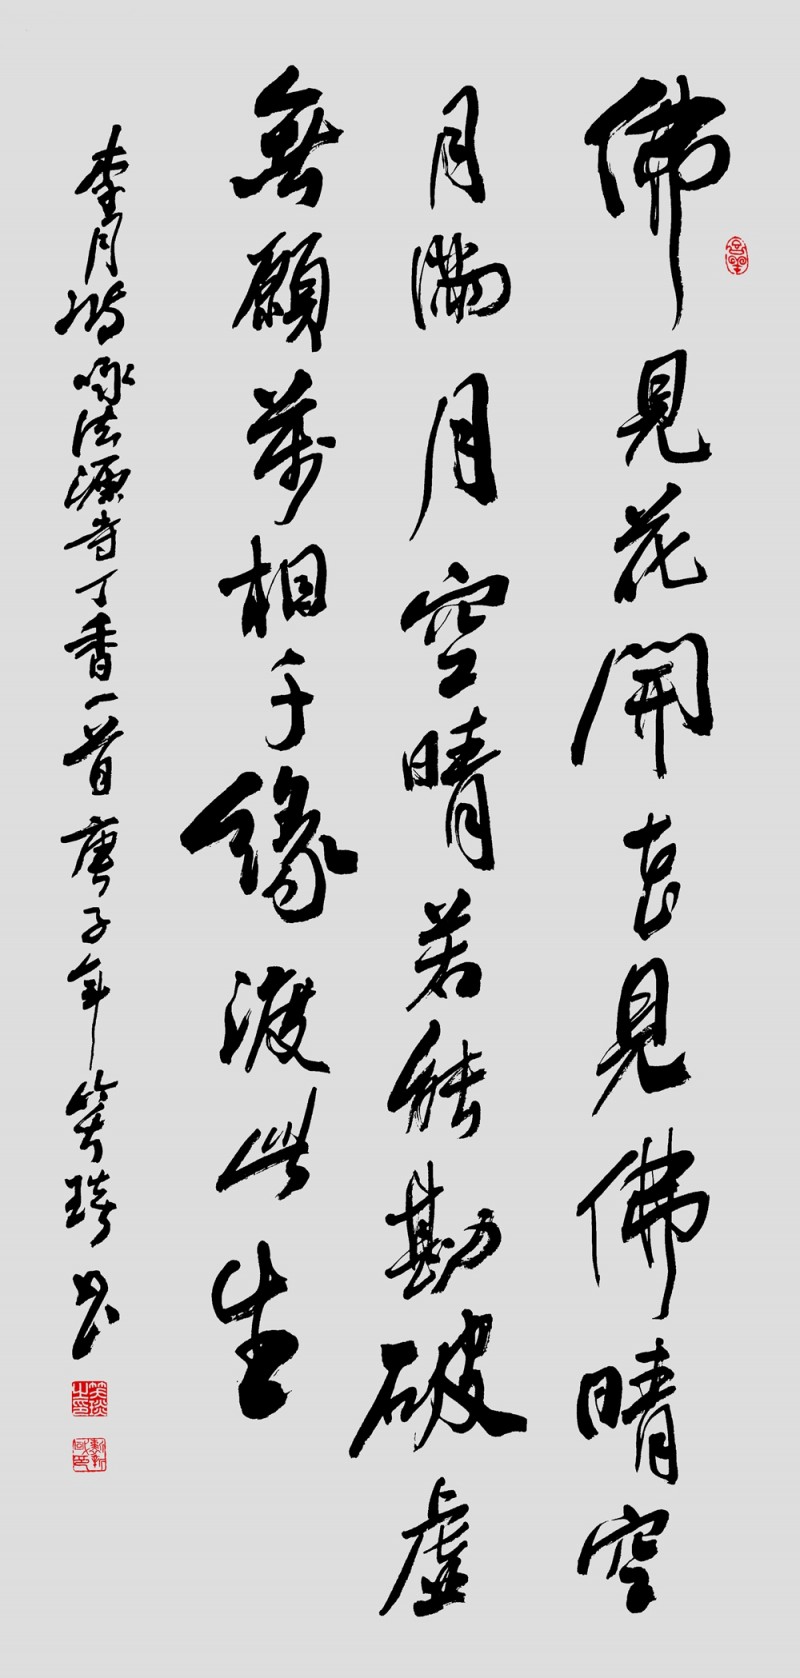 佛見花開花見佛晴空
月滿月空晴若能勘破虛
無願萬相千緣渡此生
李月咏法源寺丁香一首庚子年書